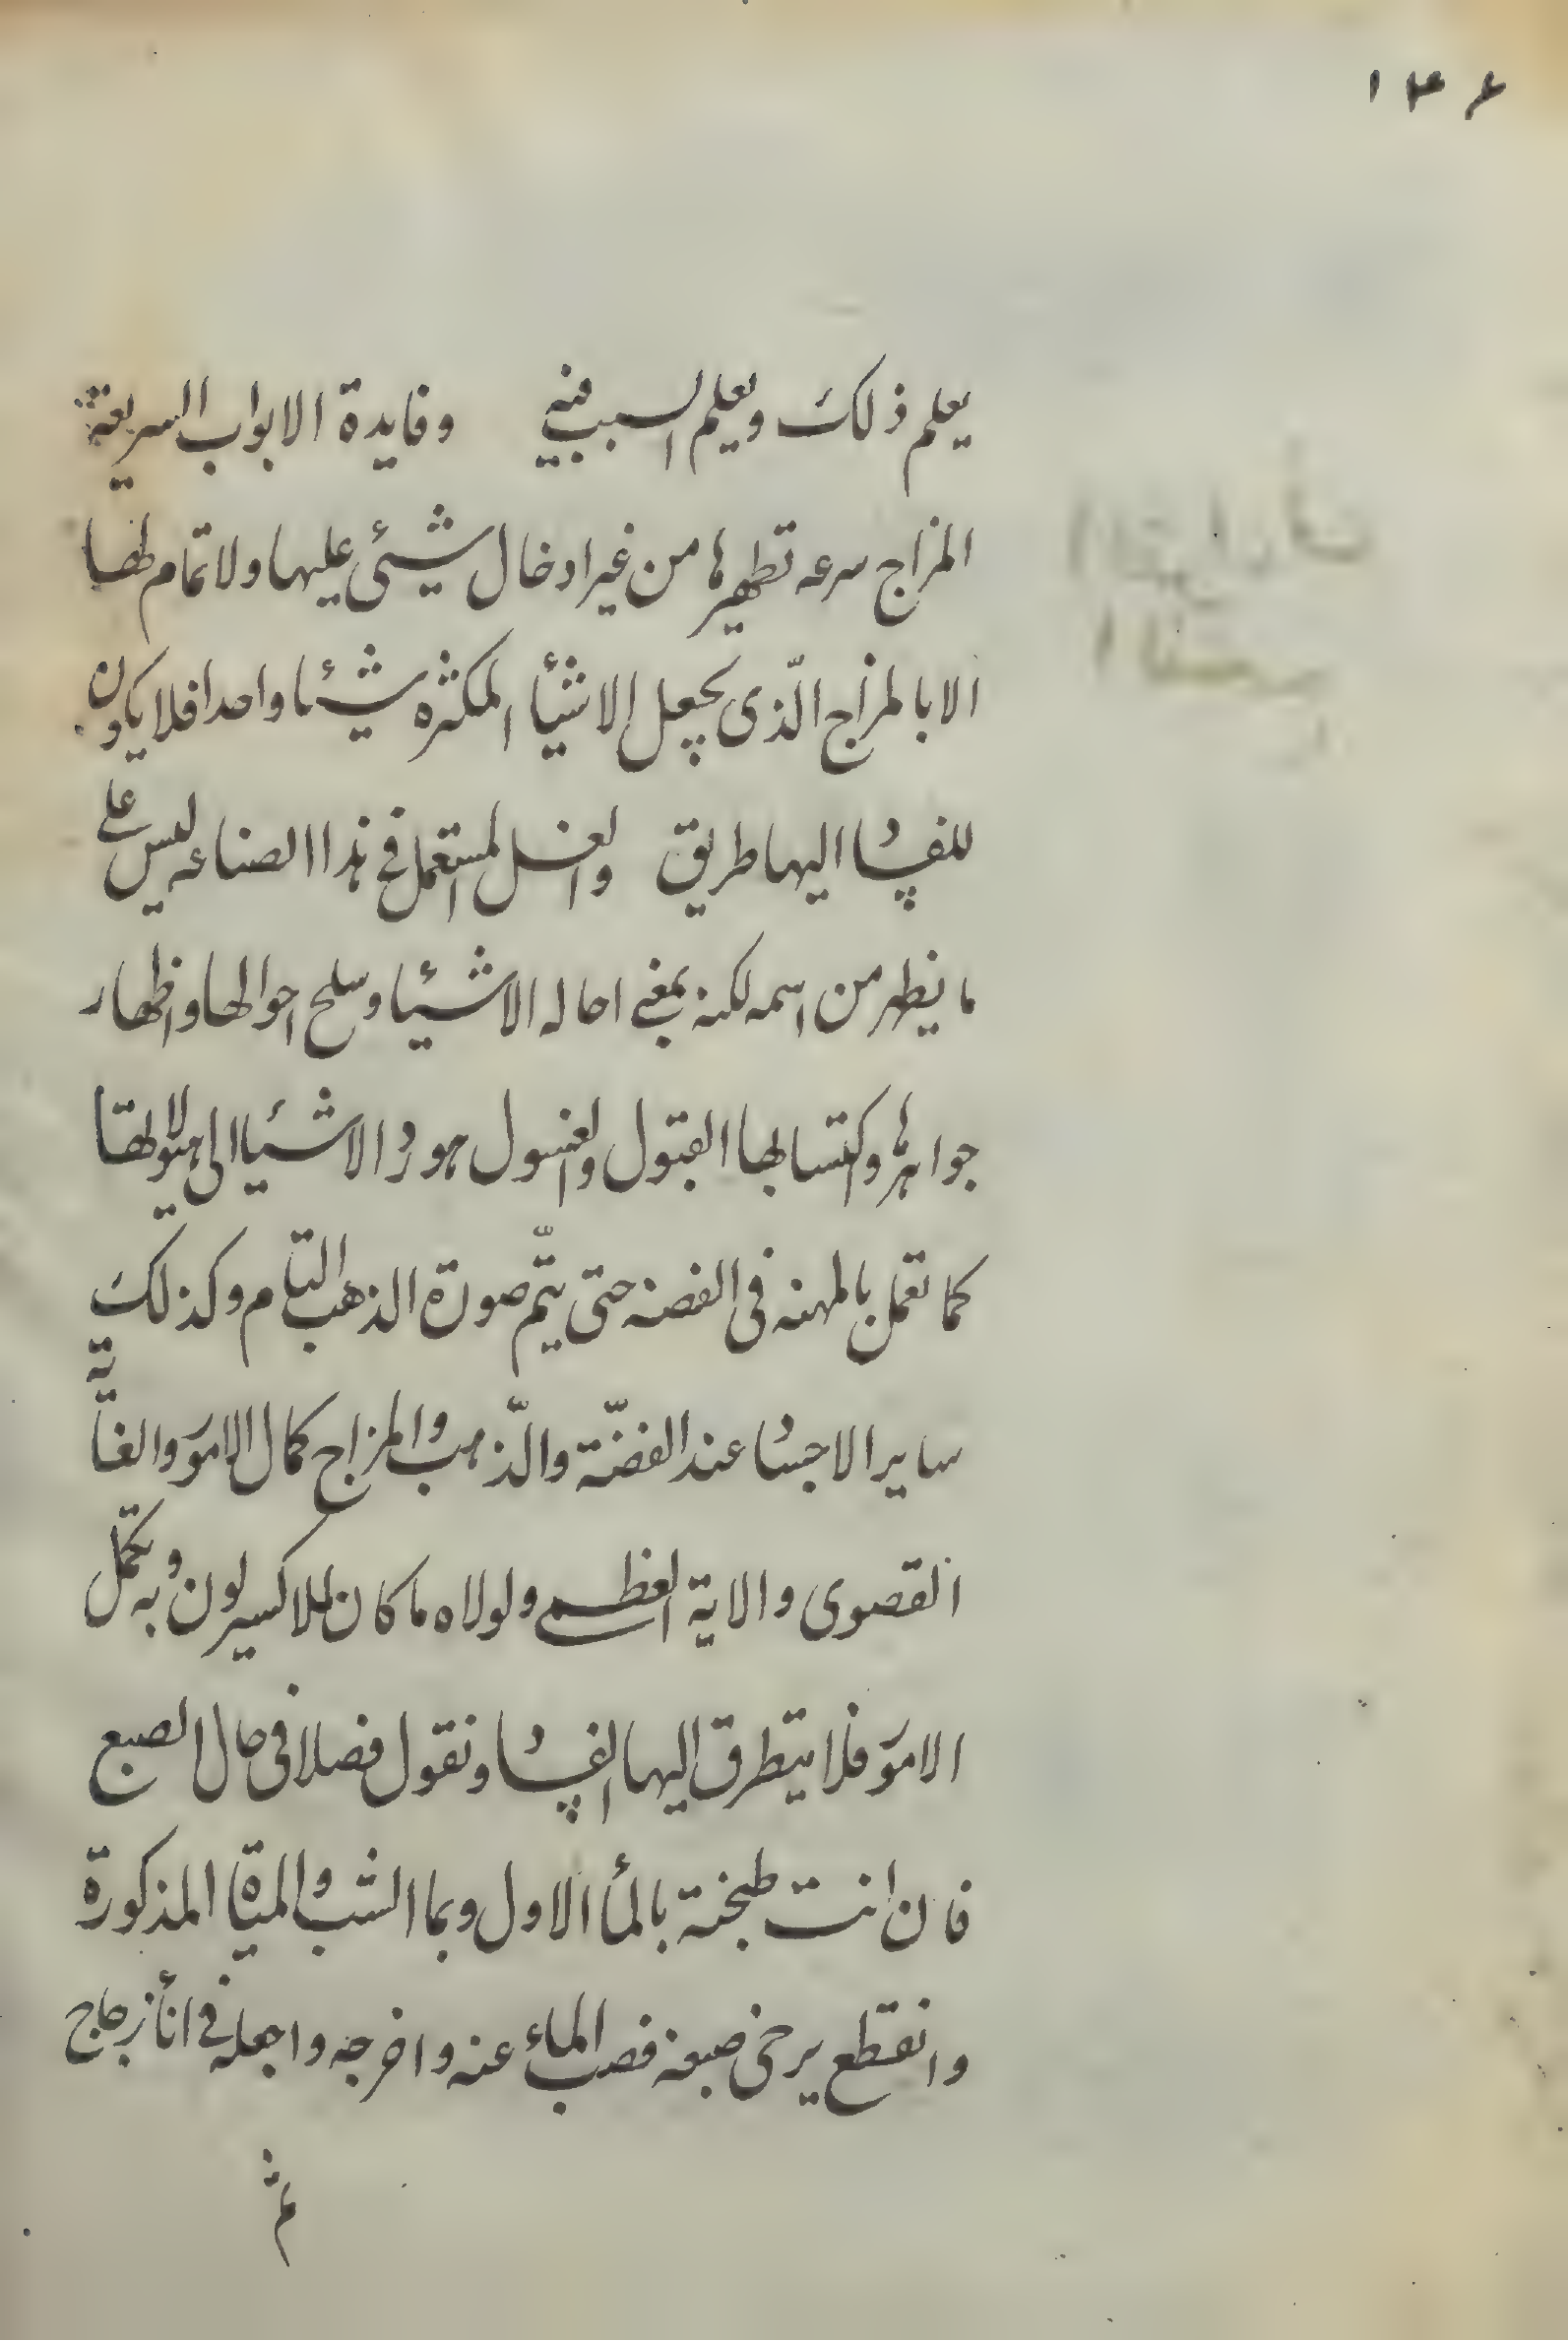 ۱۳۶
يعلم ذلك ويعلم السبب فيه وفايدة الابواب السريعة
المزاج سرعه تطهيرها من غير ادخال شيئ عليها ولا تمام لها
الا بالمزاج الّذى يجعل الاشيأ المكثره شيئا واحدا فلا يكون
للفسا اليها طريق والغسل المستعمل فى هذا الصناعه ليس على
ما يظهر من اسمه لكنه بمعنى احاله الاشيئا وسلخ احوالها واظهار
جواهرها واكتسابها القبول والغسول هو ردّ الاشيئا الى هيولاتها
كما تعمل بالمهنه فى الفضه حتى يتّم صورة الذهب التام وكذلك
ساير الاجسا عند الفضّة والّذهب والمزاج كمال الامور والغاية
القصوى والاية العظمى ولولاه ما كان للاكسير لون وبه تكمل
الامور فلا يتطرق اليها الفسا ونقول فصلا فى حال الصبع
فان انت طبخته بالمأ الاول وبما الشب والمياة المذكورة
وانقطع يرخى صبعه فصب الماء عنه واخرجه واجعله فى انأ زجاج
ثم